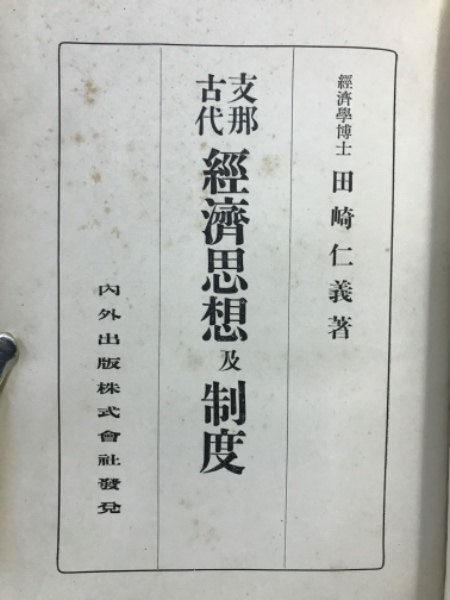 經濟學博士 田崎仁義著
支那古代 經濟思想及制度
內外出版株式會社發兌